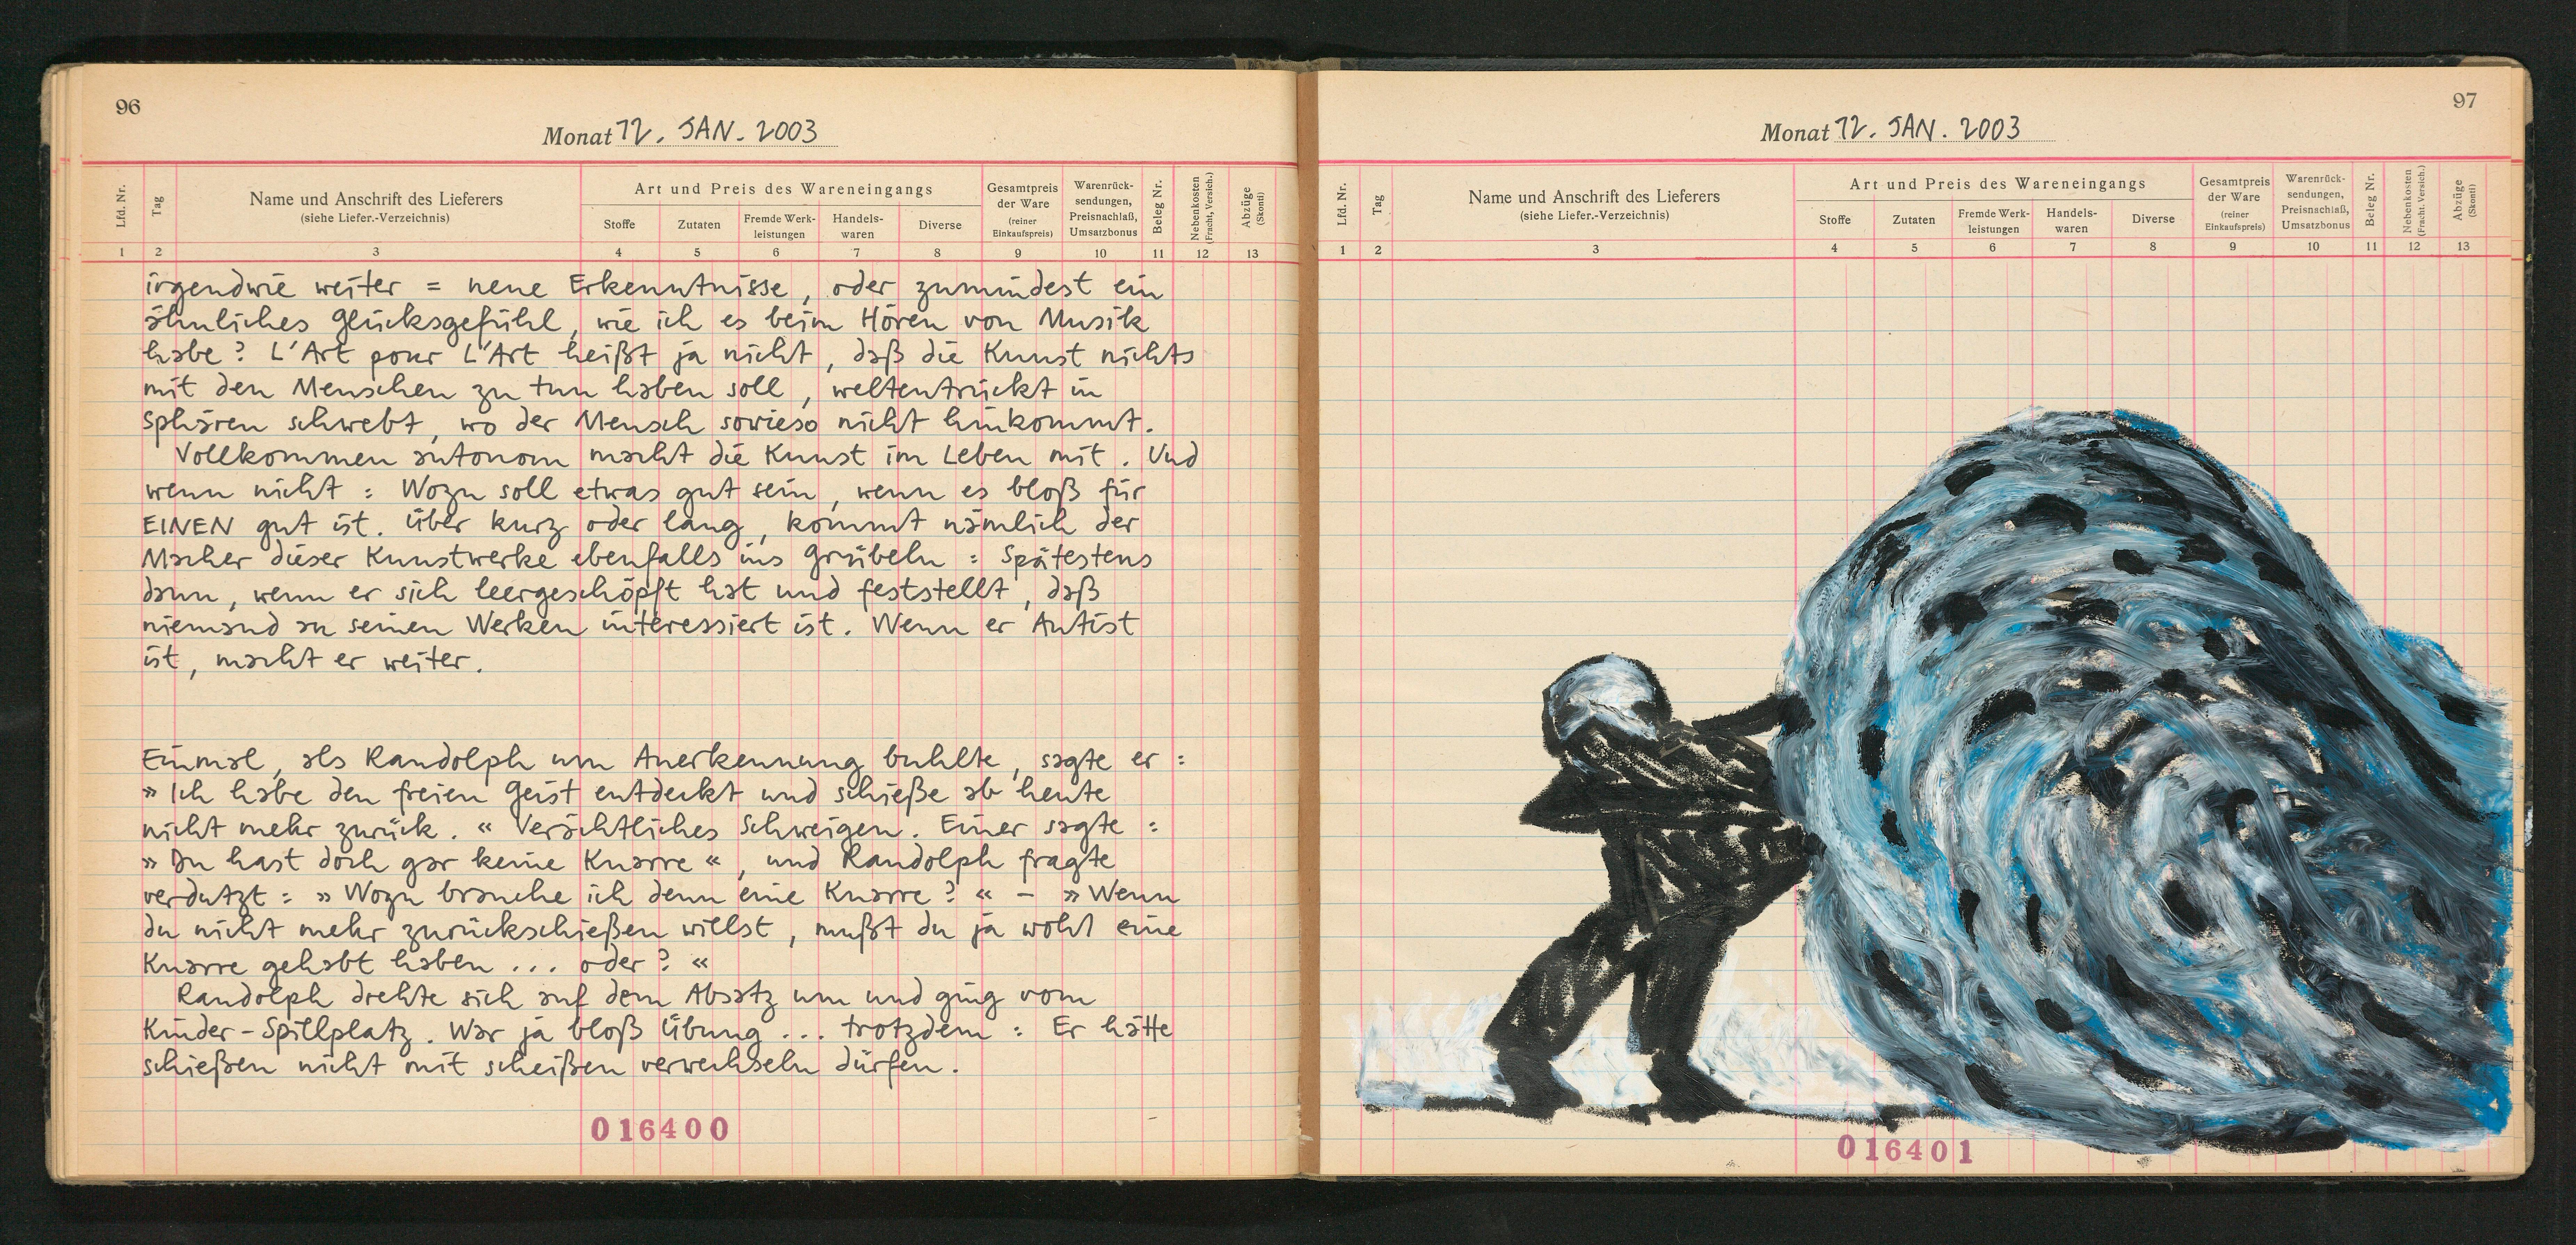 96
Monat 12. JAN. 2003
Lfd. Nr.
Tag
Name und Anschrift des Lieferers
(siehe Liefer.-Verzeichnis)
Art und Preis des Wareneingangs
Stoffe
Zutaten
Fremde Werk-
leistungen
Handels-
waren
Diverse
Gesamtpreis
der Ware
(reiner
Einkaufspreis)
Warenrück-
sendungen,
Preisnachlaß,
Umsatzbonus
Beleg Nr.
Nebenkosten
(Fracht, Versich.)
Abzüge
(Skonti)
1 2 3 4 5 6 7 8 9 10 11 12 13
irgendwie weiter = neue Erkenntnisse, oder zumindest ein
ähnliches Glücksgefühl, wie ich es beim Hören von Musik
habe? L'Art pour L'Art heißt ja nicht, daß die Kunst nichts
mit den Menschen zu tun haben soll, weltentrückt in
Sphären schwebt, wo der Mensch sowieso nicht hinkommt.
Vollkommen autonom macht die Kunst im Leben mit. Und
wenn nicht: Wozu soll etwas gut sein, wenn es bloß für
EINEN gut ist. Über kurz oder lang, kommt nämlich der
Macher dieser Kunstwerke ebenfalls ins Grübeln: Spätestens
dann, wenn er sich leergeschöpft hat und feststellt, daß
niemand an seinen Werken interessiert ist. Wenn er Autist
ist, macht er weiter.
Einmal, als Randolph um Anerkennung buhlte, sagte er:
»Ich habe den freien Geist entdeckt und schieße ab heute
nicht mehr zurück.« Verächtliches Schweigen. Einer sagte:
»Du hast doch gar keine Knarre«, und Randolph fragte
verdutzt: »Wozu brauche ich denn eine Knarre?« – »Wenn
du nicht mehr zurückschießen willst, mußt du ja wohl eine
Knarre gehabt haben... oder?«
Randolph drehte sich auf dem Absatz um und ging vom
Kinder-Spillplatz. War ja bloß Übung... trotzdem: Er hätte
schießen nicht mit scheißen verwechseln dürfen.
016400
97
Monat 12. JAN. 2003
Lfd. Nr.
Tag
Name und Anschrift des Lieferers
(siehe Liefer.-Verzeichnis)
Art und Preis des Wareneingangs
Stoffe
Zutaten
Fremde Werk-
leistungen
Handels-
waren
Diverse
Gesamtpreis
der Ware
(reiner
Einkaufspreis)
Warenrück-
sendungen,
Preisnachlaß,
Umsatzbonus
Beleg Nr.
Nebenkosten
(Fracht, Versich.)
Abzüge
(Skonti)
1 2 3 4 5 6 7 8 9 10 11 12 13
016401